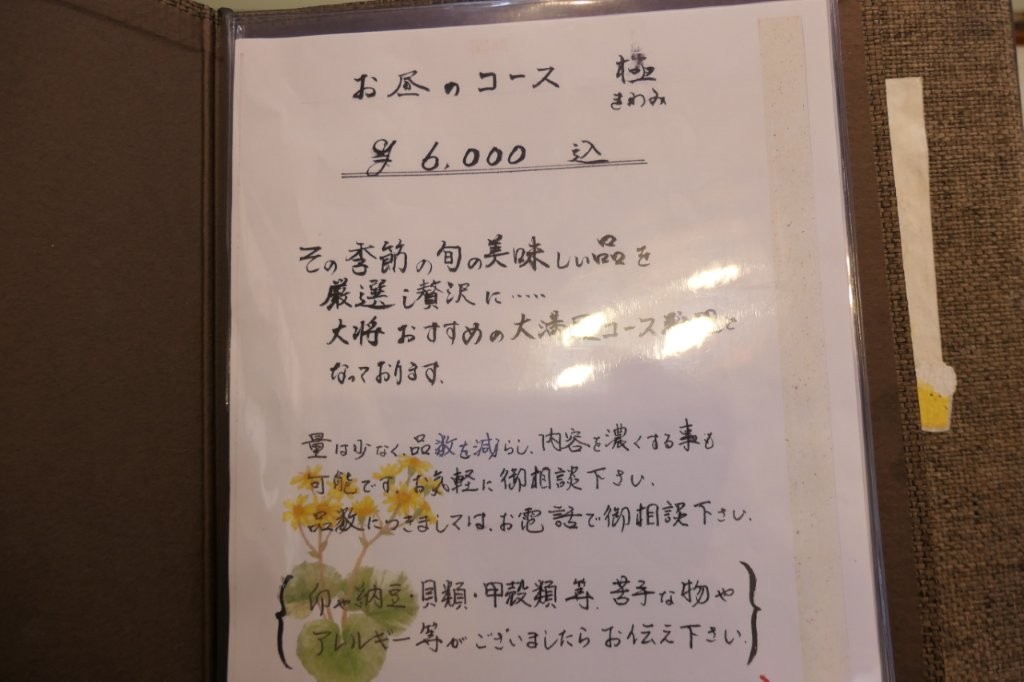 お昼のコース 極
きわみ
¥6,000 込
その季節の旬の美味しい品を
厳選し贅沢に……
大将おすすめの大満足コース料理と
なっております。
量は少なく、品数を減らし、内容を濃くする事も
可能です。お気軽に御相談下さい。
品数につきましては、お電話で御相談下さい。
卵や納豆・貝類・甲殻類等、苦手な物や
アレルギー等がございましたらお伝え下さい。